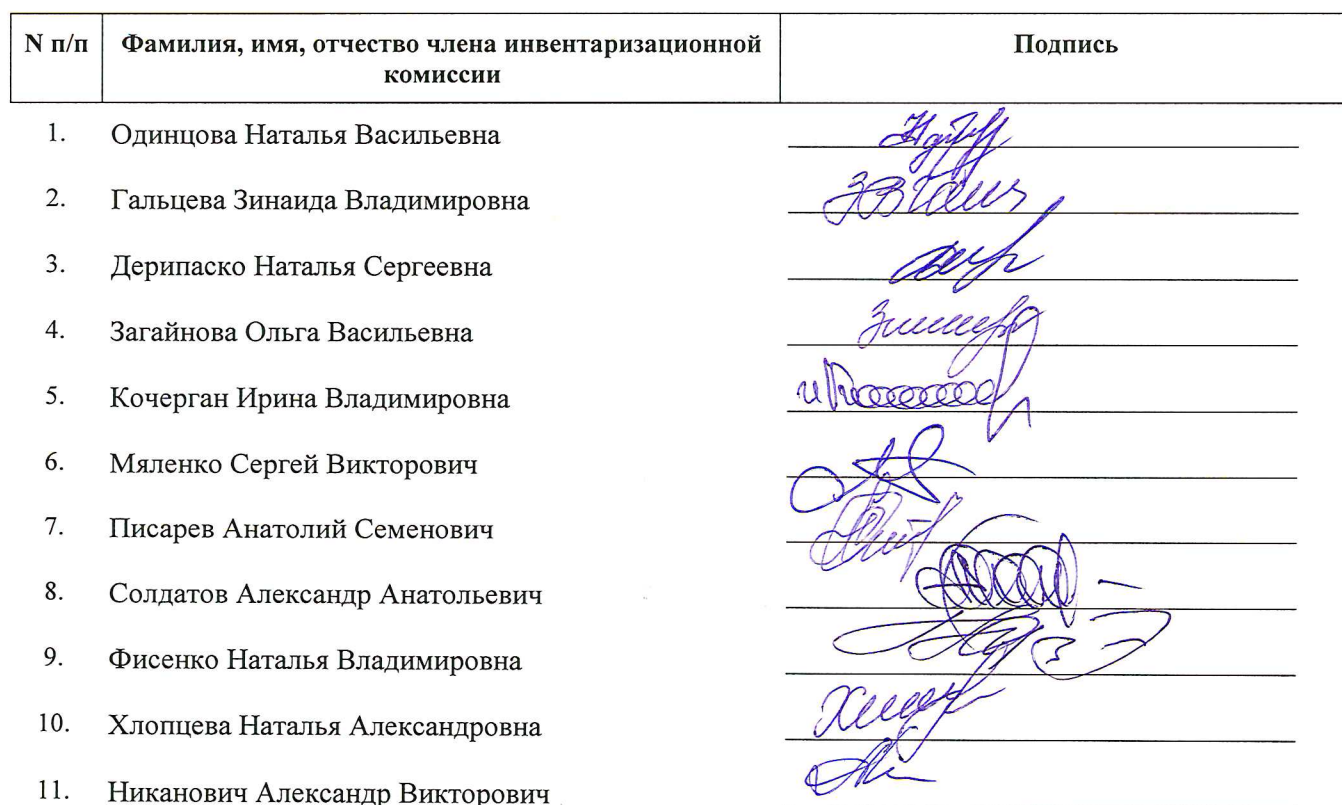 N п/п Фамилия, имя, отчество члена инвентаризационной Подпись
комиссии
1. Одинцова Наталья Васильевна
2. Гальцева Зинаида Владимировна
3. Дерипаско Наталья Сергеевна
4. Загайнова Ольга Васильевна
5. Кочерган Ирина Владимировна
6. Мяленко Сергей Викторович
7. Писарев Анатолий Семенович
8. Солдатов Александр Анатольевич
9. Фисенко Наталья Владимировна
10. Хлопцева Наталья Александровна
11. Никанович Александр Викторович